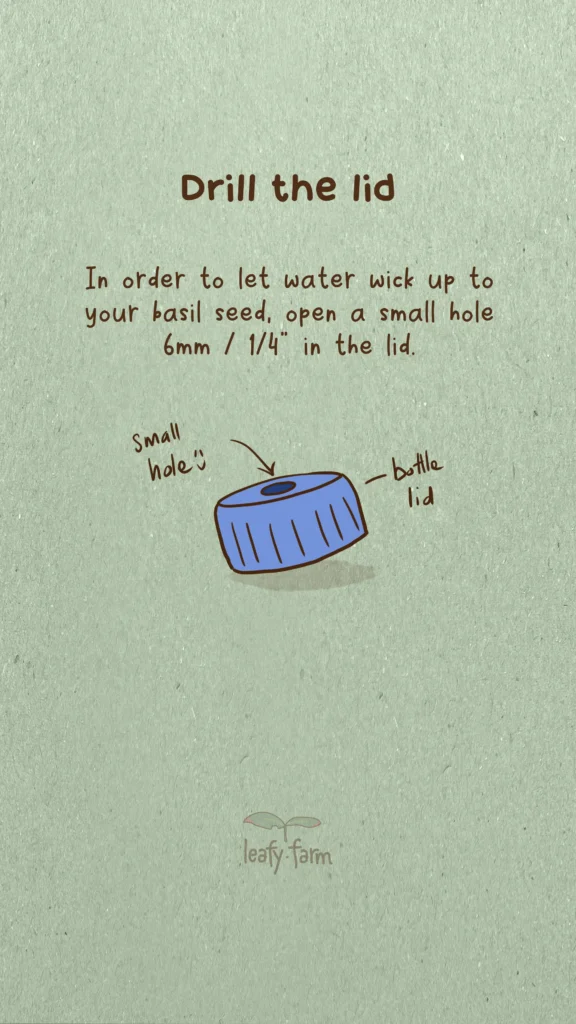 Drill the lid
In order to let water wick up to
your basil seed, open a small hole
6mm / 1/4" in the lid.
small
hole
bottle
lid
leafy farm